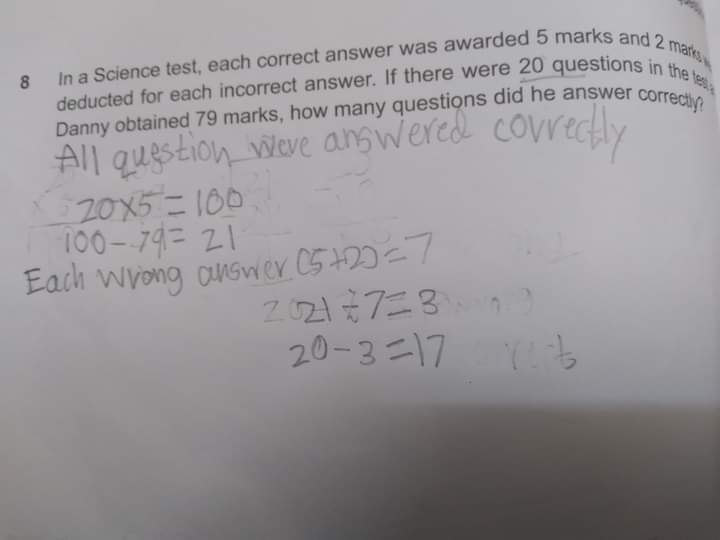 8 In a Science test, each correct answer was awarded 5 marks and 2 marks
deducted for each incorrect answer. If there were 20 questions in the test
Danny obtained 79 marks, how many questions did he answer correctly?
All question were answered correctly
20x5=100
100-79=21
Each wrong answer (5+2)=7
21÷7=3
20-3=17